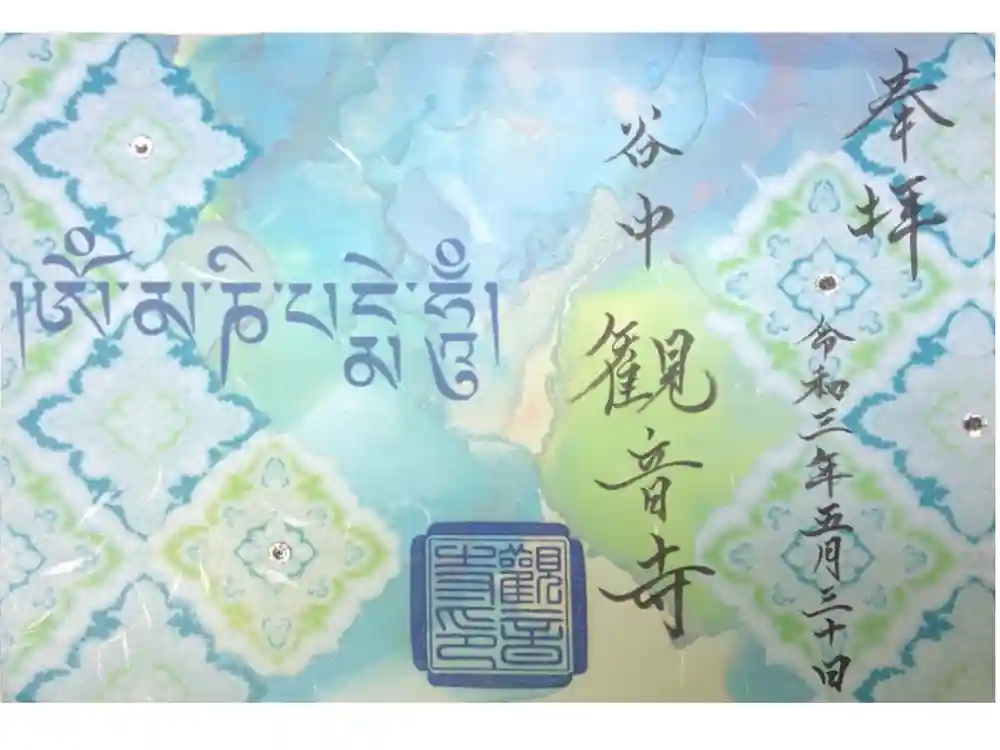 奉拝
令和三年五月三十日
谷中
観音寺
།ཨོཾ་མ་ཎི་པདྨེ་ཧཱུྃ།
觀音
寺印